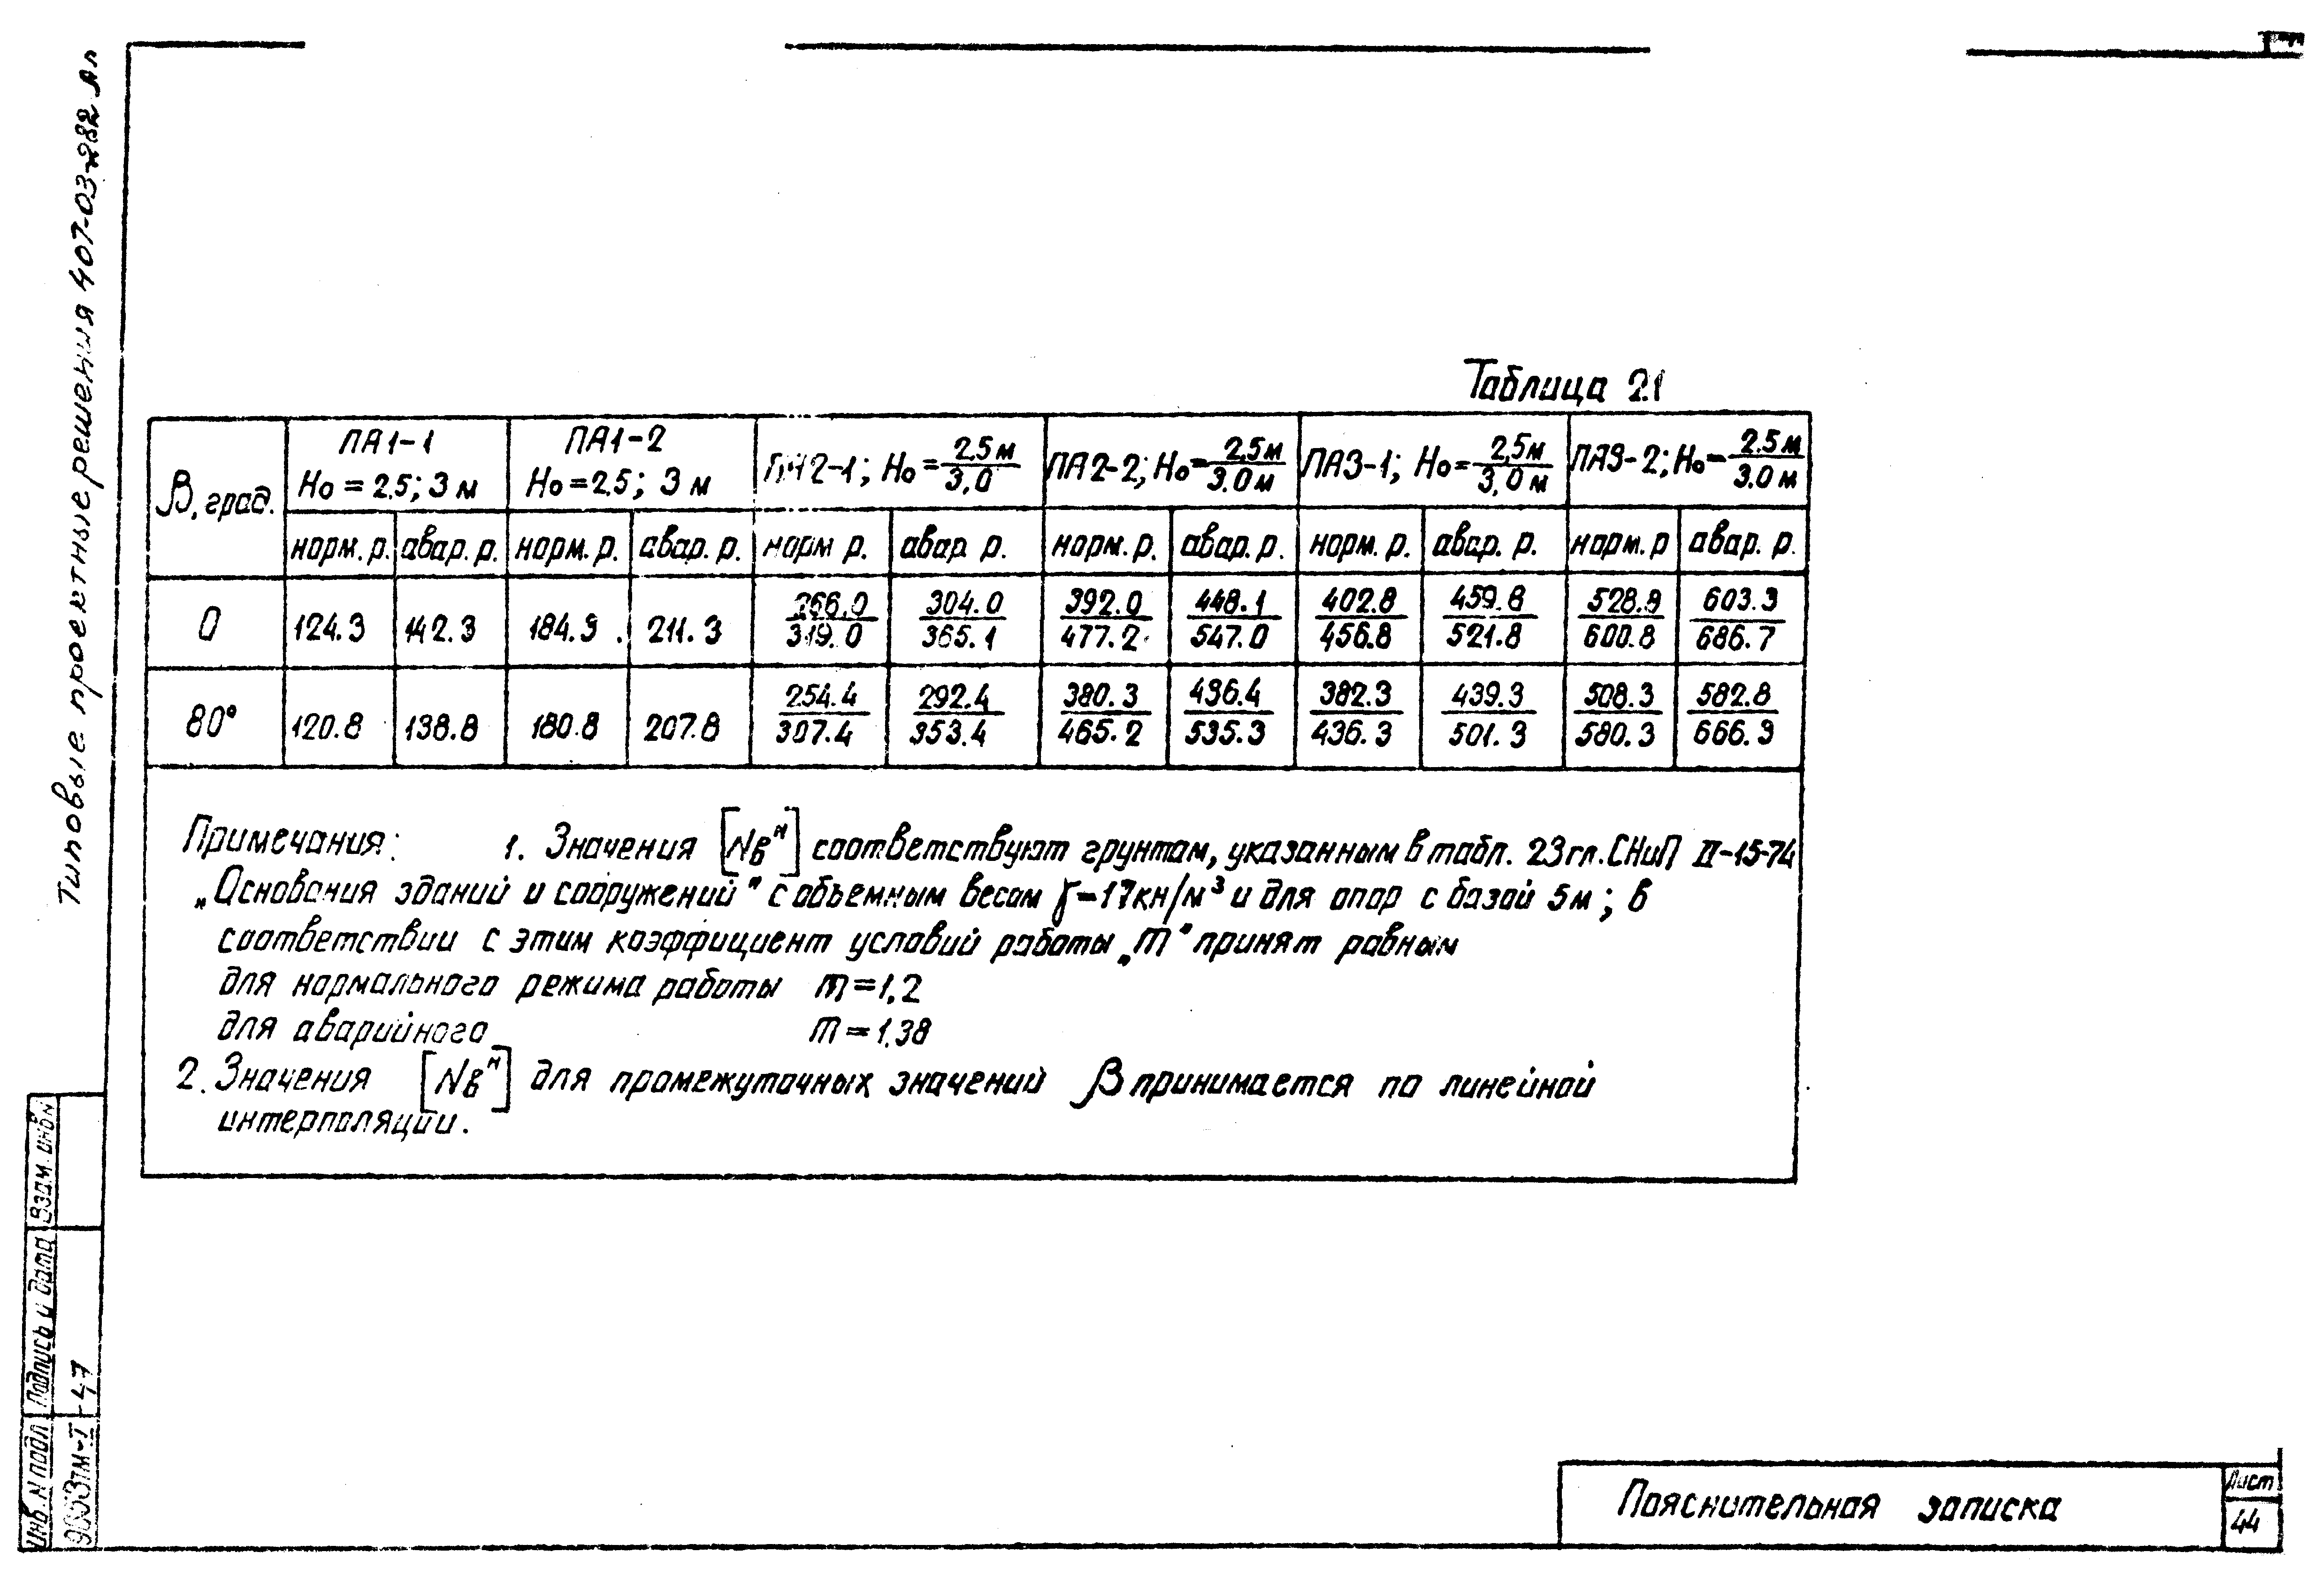 Типовые проектные решения 407-03-282 Ал
Таблица 21
β, град. ПА1-1 Но = 2.5; 3 м ПА1-2 Но = 2.5; 3 м ПА2-1; Но = 2.5 м / 3,0 ПА2-2; Но = 2,5 м / 3.0 м ПА3-1; Но = 2,5 м / 3,0 м ПА3-2; Но = 2.5 м / 3.0 м
норм. р. авар. р. норм. р. авар. р. норм р. авар р. норм. р. авар. р. норм. р. авар. р. норм. р авар. р.
0 124.3 142.3 184.9 211.3 266.0/319.0 304.0/365.1 392.0/477.2 448.1/547.0 402.8/456.8 459.8/521.8 528.9/600.8 603.3/686.7
80° 120.8 138.8 180.8 207.8 254.4/307.4 292.4/353.4 380.3/465.2 436.4/535.3 382.3/436.3 439.3/501.3 508.3/580.3 582.8/666.9
Примечания: 1. Значения [Nвᴺ] соответствуют грунтам, указанным в табл. 23 гл. СНиП II-15-74
„Основания зданий и сооружений" с объемным весом γ=17кн/м³ и для опор с базой 5м; в
соответствии с этим коэффициент условий работы „m" принят равным
для нормального режима работы m=1,2
для аварийного m=1.38
2. Значения [Nвᴺ] для промежуточных значений β принимается по линейной
интерполяции.
Взам. инв. N
Подпись и дата
Инв. N подл
-47
Пояснительная записка
Лист
44